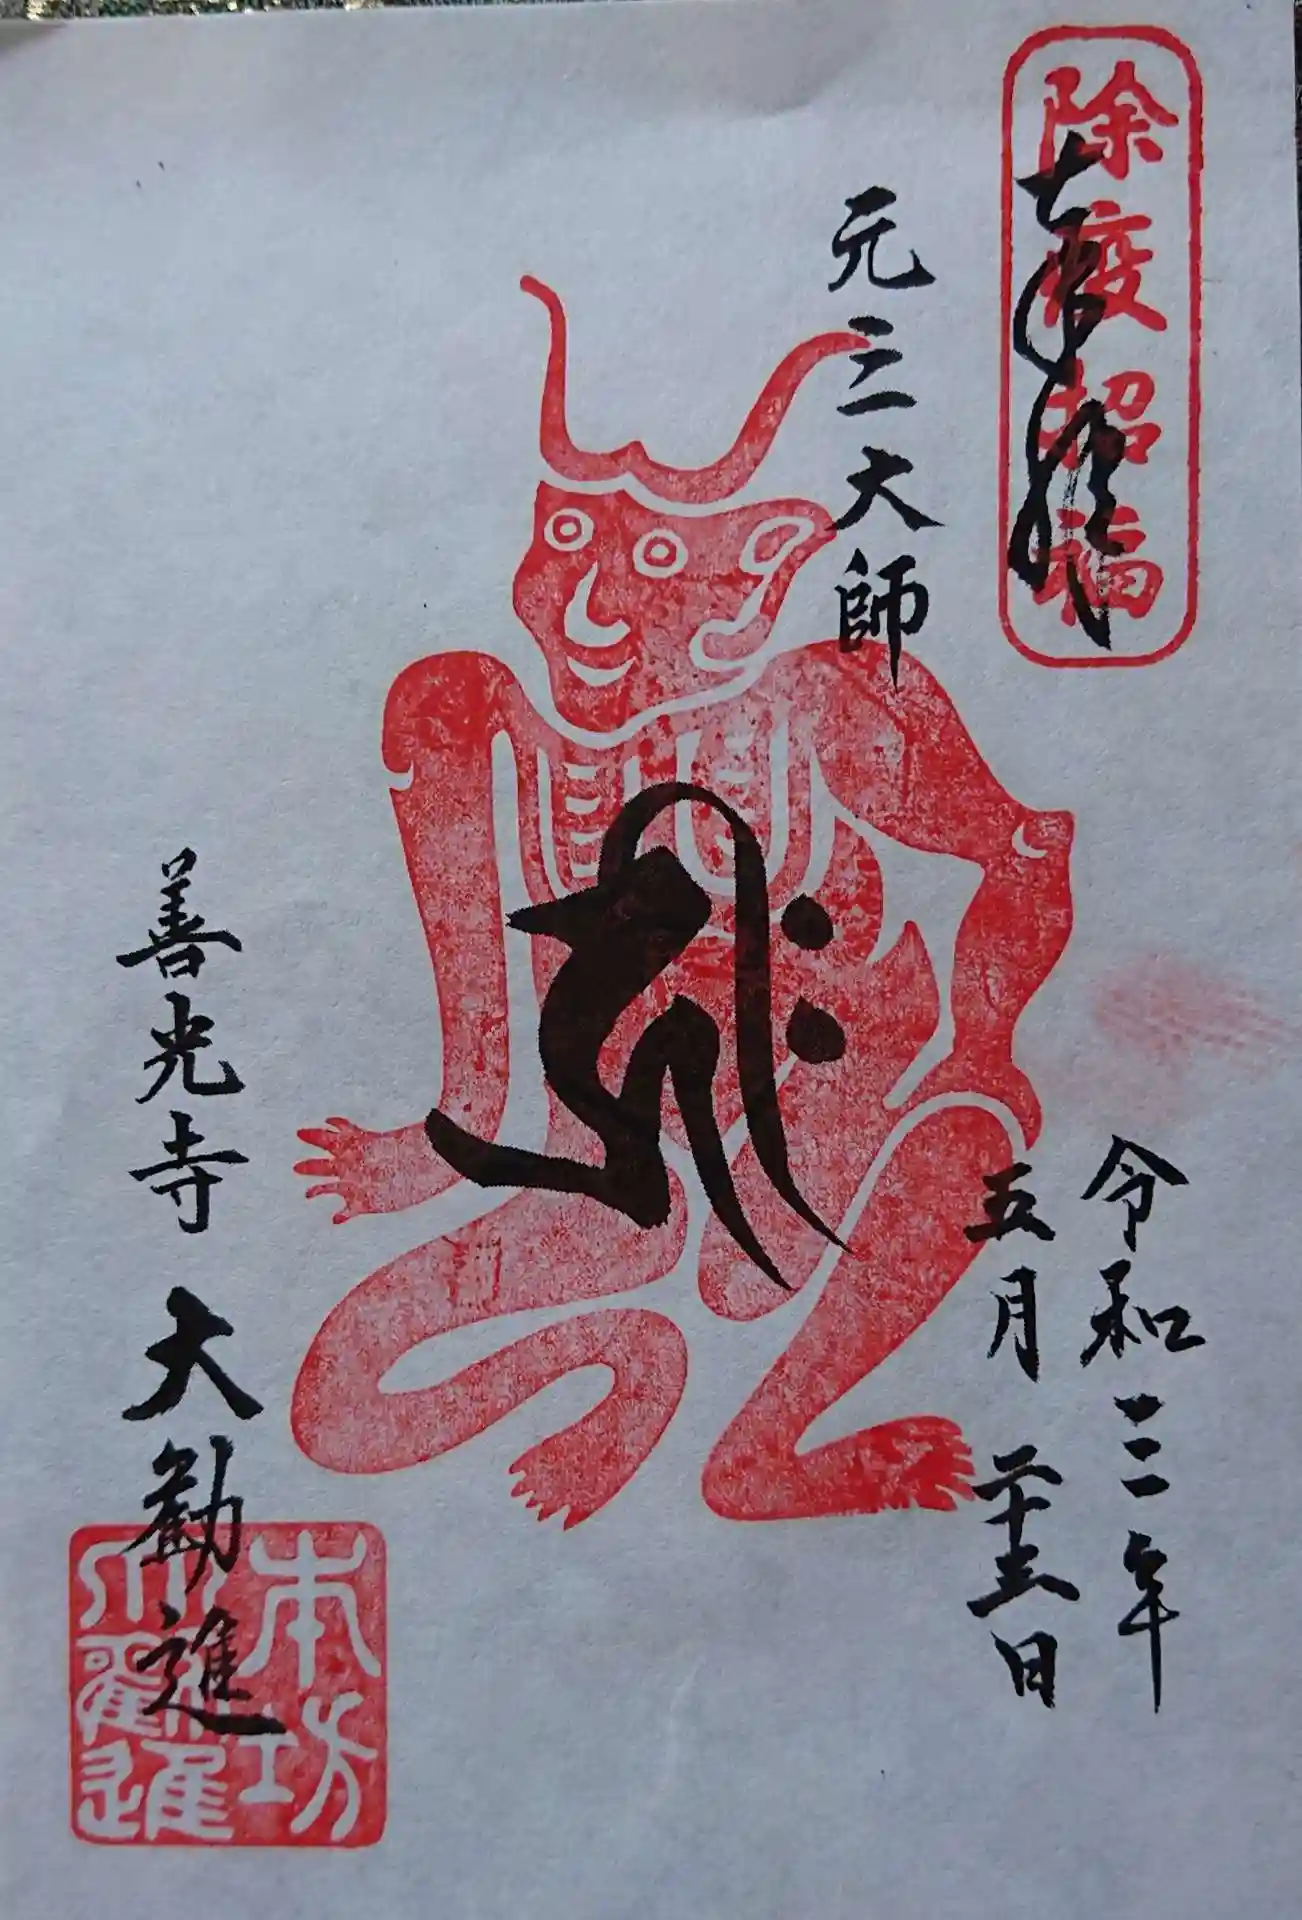 除疫招福
奉拝
元三大師
令和三年
五月二十三日
善光寺 大勧進
本坊
大勧進